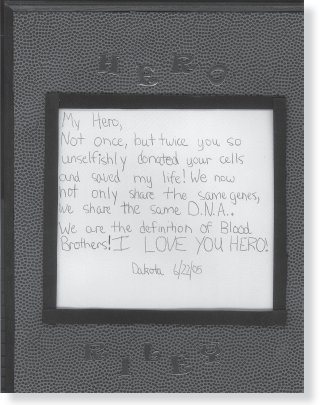 HERO
My Hero,
Not once, but twice you so
unselfishly donated your cells
and saved my life! We now
not only share the same genes,
we share the same D.N.A..
We are the definition of Blood
Brothers! I LOVE YOU HERO!
Dakota 6/22/05
RILEY